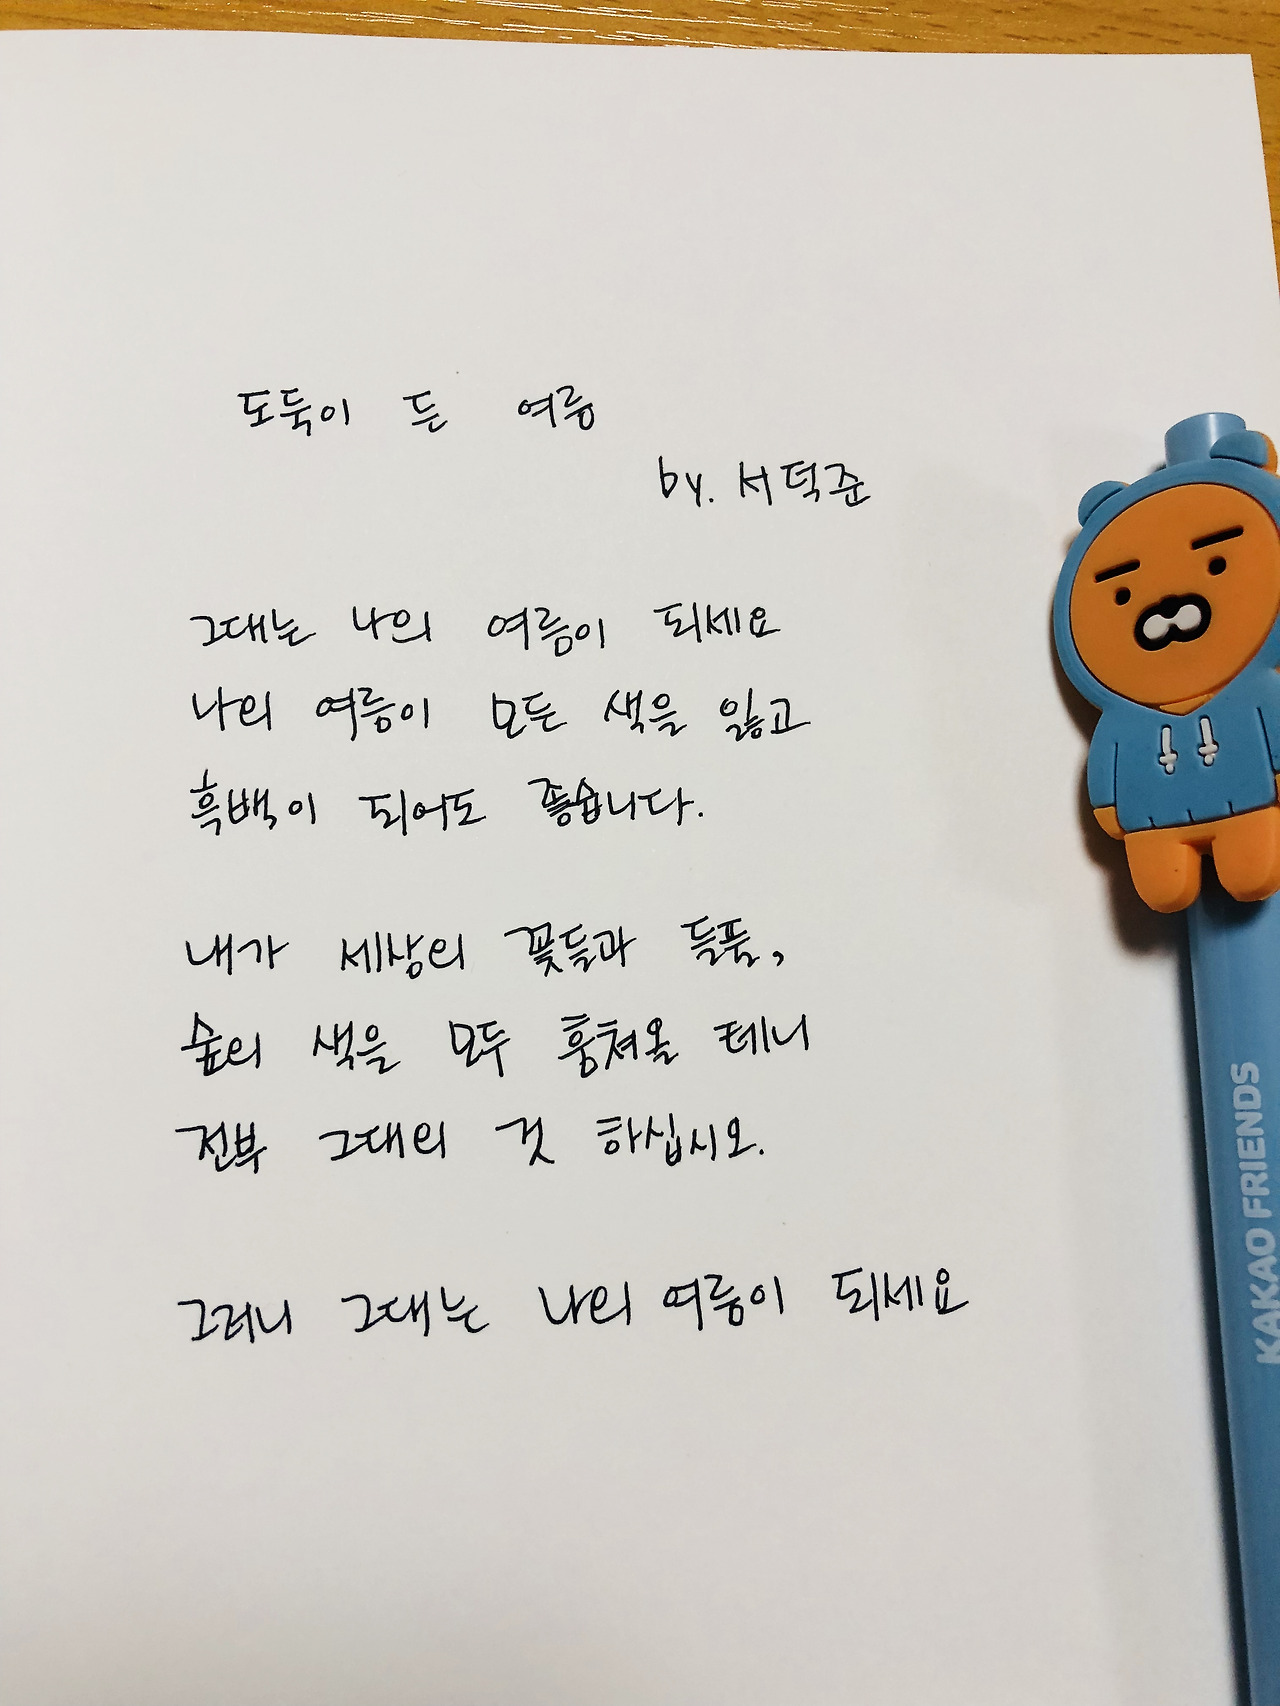 도둑이 든 여름
by. 서덕준
그대는 나의 여름이 되세요
나의 여름이 모든 색을 잃고
흑백이 되어도 좋습니다.
내가 세상의 꽃들과 들풀,
숲의 색을 모두 훔쳐올 테니
전부 그대의 것 하십시오.
그러니 그대는 나의 여름이 되세요
KAKAO FRIENDS